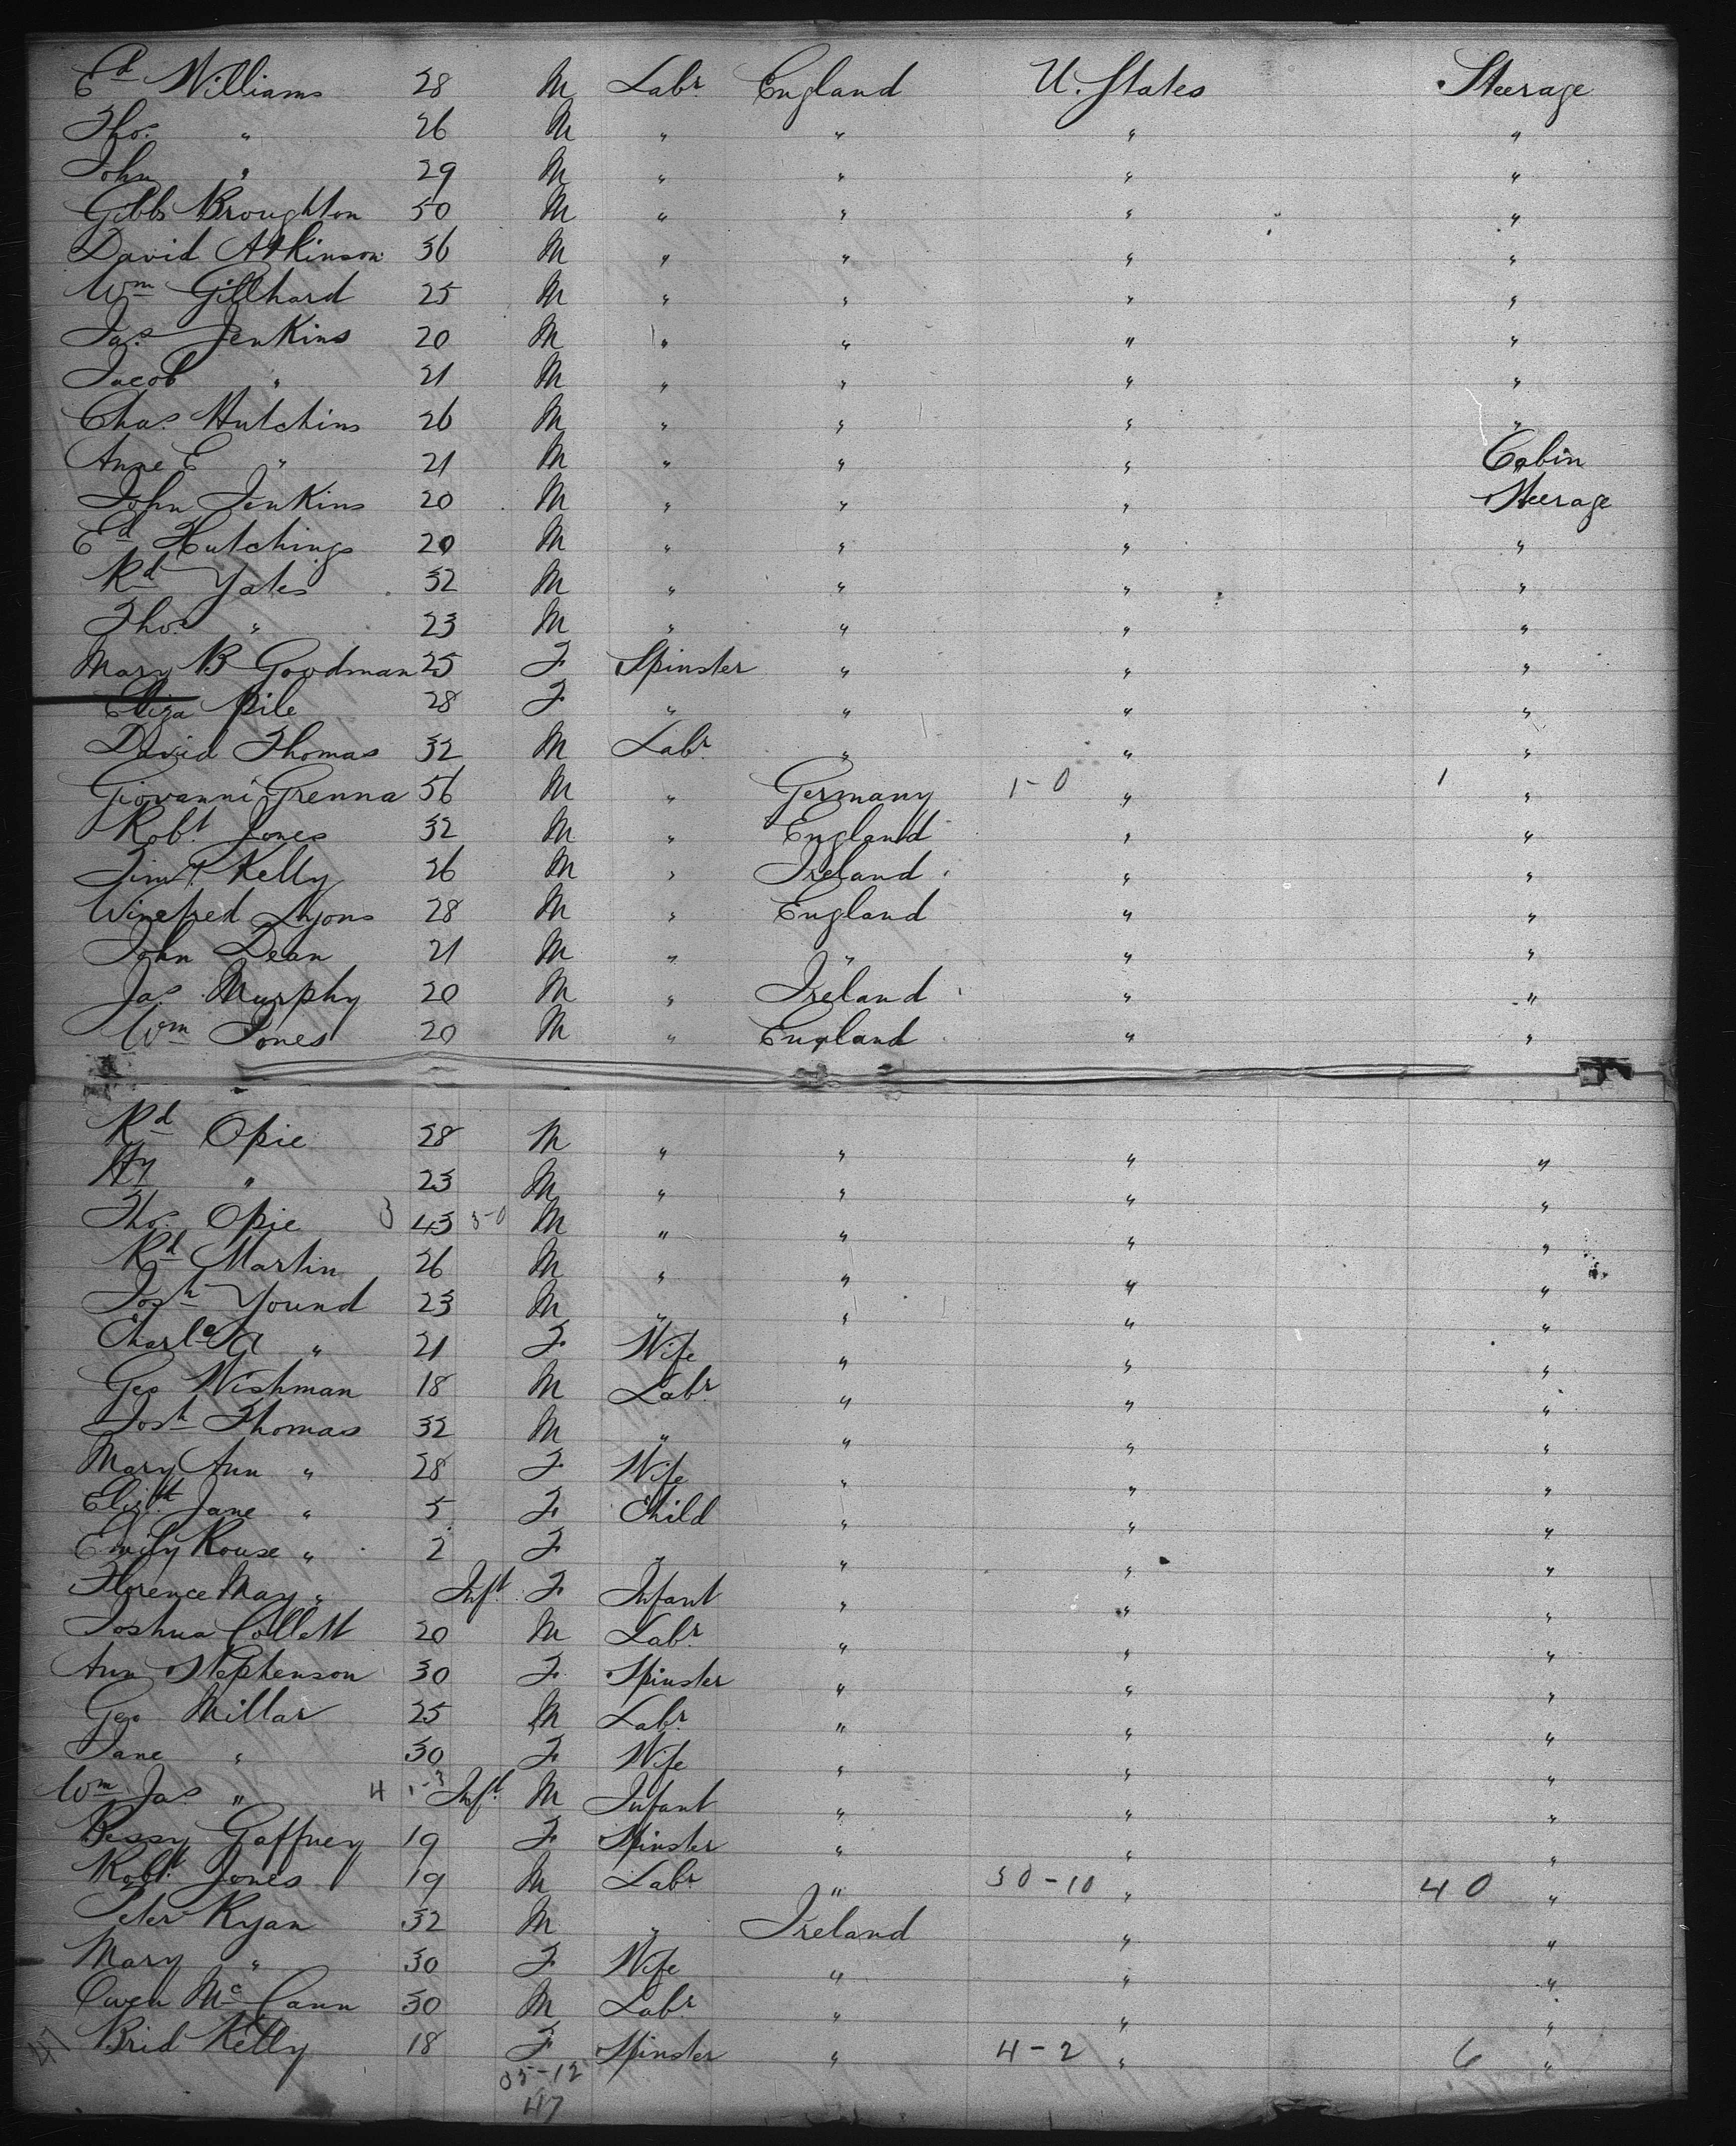 Ed Williams 28 M Labr England U. States Steerage
Thos. " 26 M " " " "
John " 29 M " " " "
Gibbs Broughton 50 M " " " "
David Atkinson 36 M " " " "
Wm Gillhard 25 M " " " "
Jas. Jenkins 20 M " " " "
Jacob " 21 M " " " "
Chas. Hutchins 26 M " " " "
Anne E " 21 M " " " Cabin
John Jenkins 20 M " " " Steerage
Ed Hutchings 20 M " " " "
Rd Yates 32 M " " " "
Thos. " 23 M " " " "
Mary B Goodman 25 F Spinster " " "
Eliza Pile 28 F " " " "
David Thomas 32 M Labr " " "
Giovanni Grenna 56 M " Germany 1-0 " 1 "
Robt Jones 32 M " England " "
Timy. Kelly 26 M " Ireland " "
Winefred Lyons 28 M " England " "
John Dean 21 M " " " "
Jas. Murphy 20 M " Ireland " "
Wm Jones 20 M " England " "
Rd Opie 28 M " " " "
Hy " 23 M " " " "
Thos. Opie 3 43 3-0 M " " " "
Rd Martin 26 M " " " "
Josh Yound 23 M " " " "
Charle A " 21 F Wife " " "
Geo Wishman 18 M Labr " " "
Josh Thomas 32 M " " " "
Mary Ann " 28 F Wife " " "
Elizth Jane " 5 F Child " " "
Emily Rouse " 2 F " " " "
Florence May " Inft. F Infant " " "
Joshua Collett 20 M Labr " " "
Ann Stephenson 30 F Spinster " " "
Geo Millar 25 M Labr " " "
Jane " 30 F Wife " " "
Wm Jas " 4 1-3 Inft. M Infant " " "
Bessy Gaffney 19 F Spinster " " "
Robt. Jones 19 M Labr " 30-10 " 40 "
Peter Ryan 32 M " Ireland " "
Mary " 30 F Wife " " "
Owen Mc Cann 30 M Labr " " "
47 Brid Kelly 18 F Spinster " 4-2 " 6 "
35-12
47